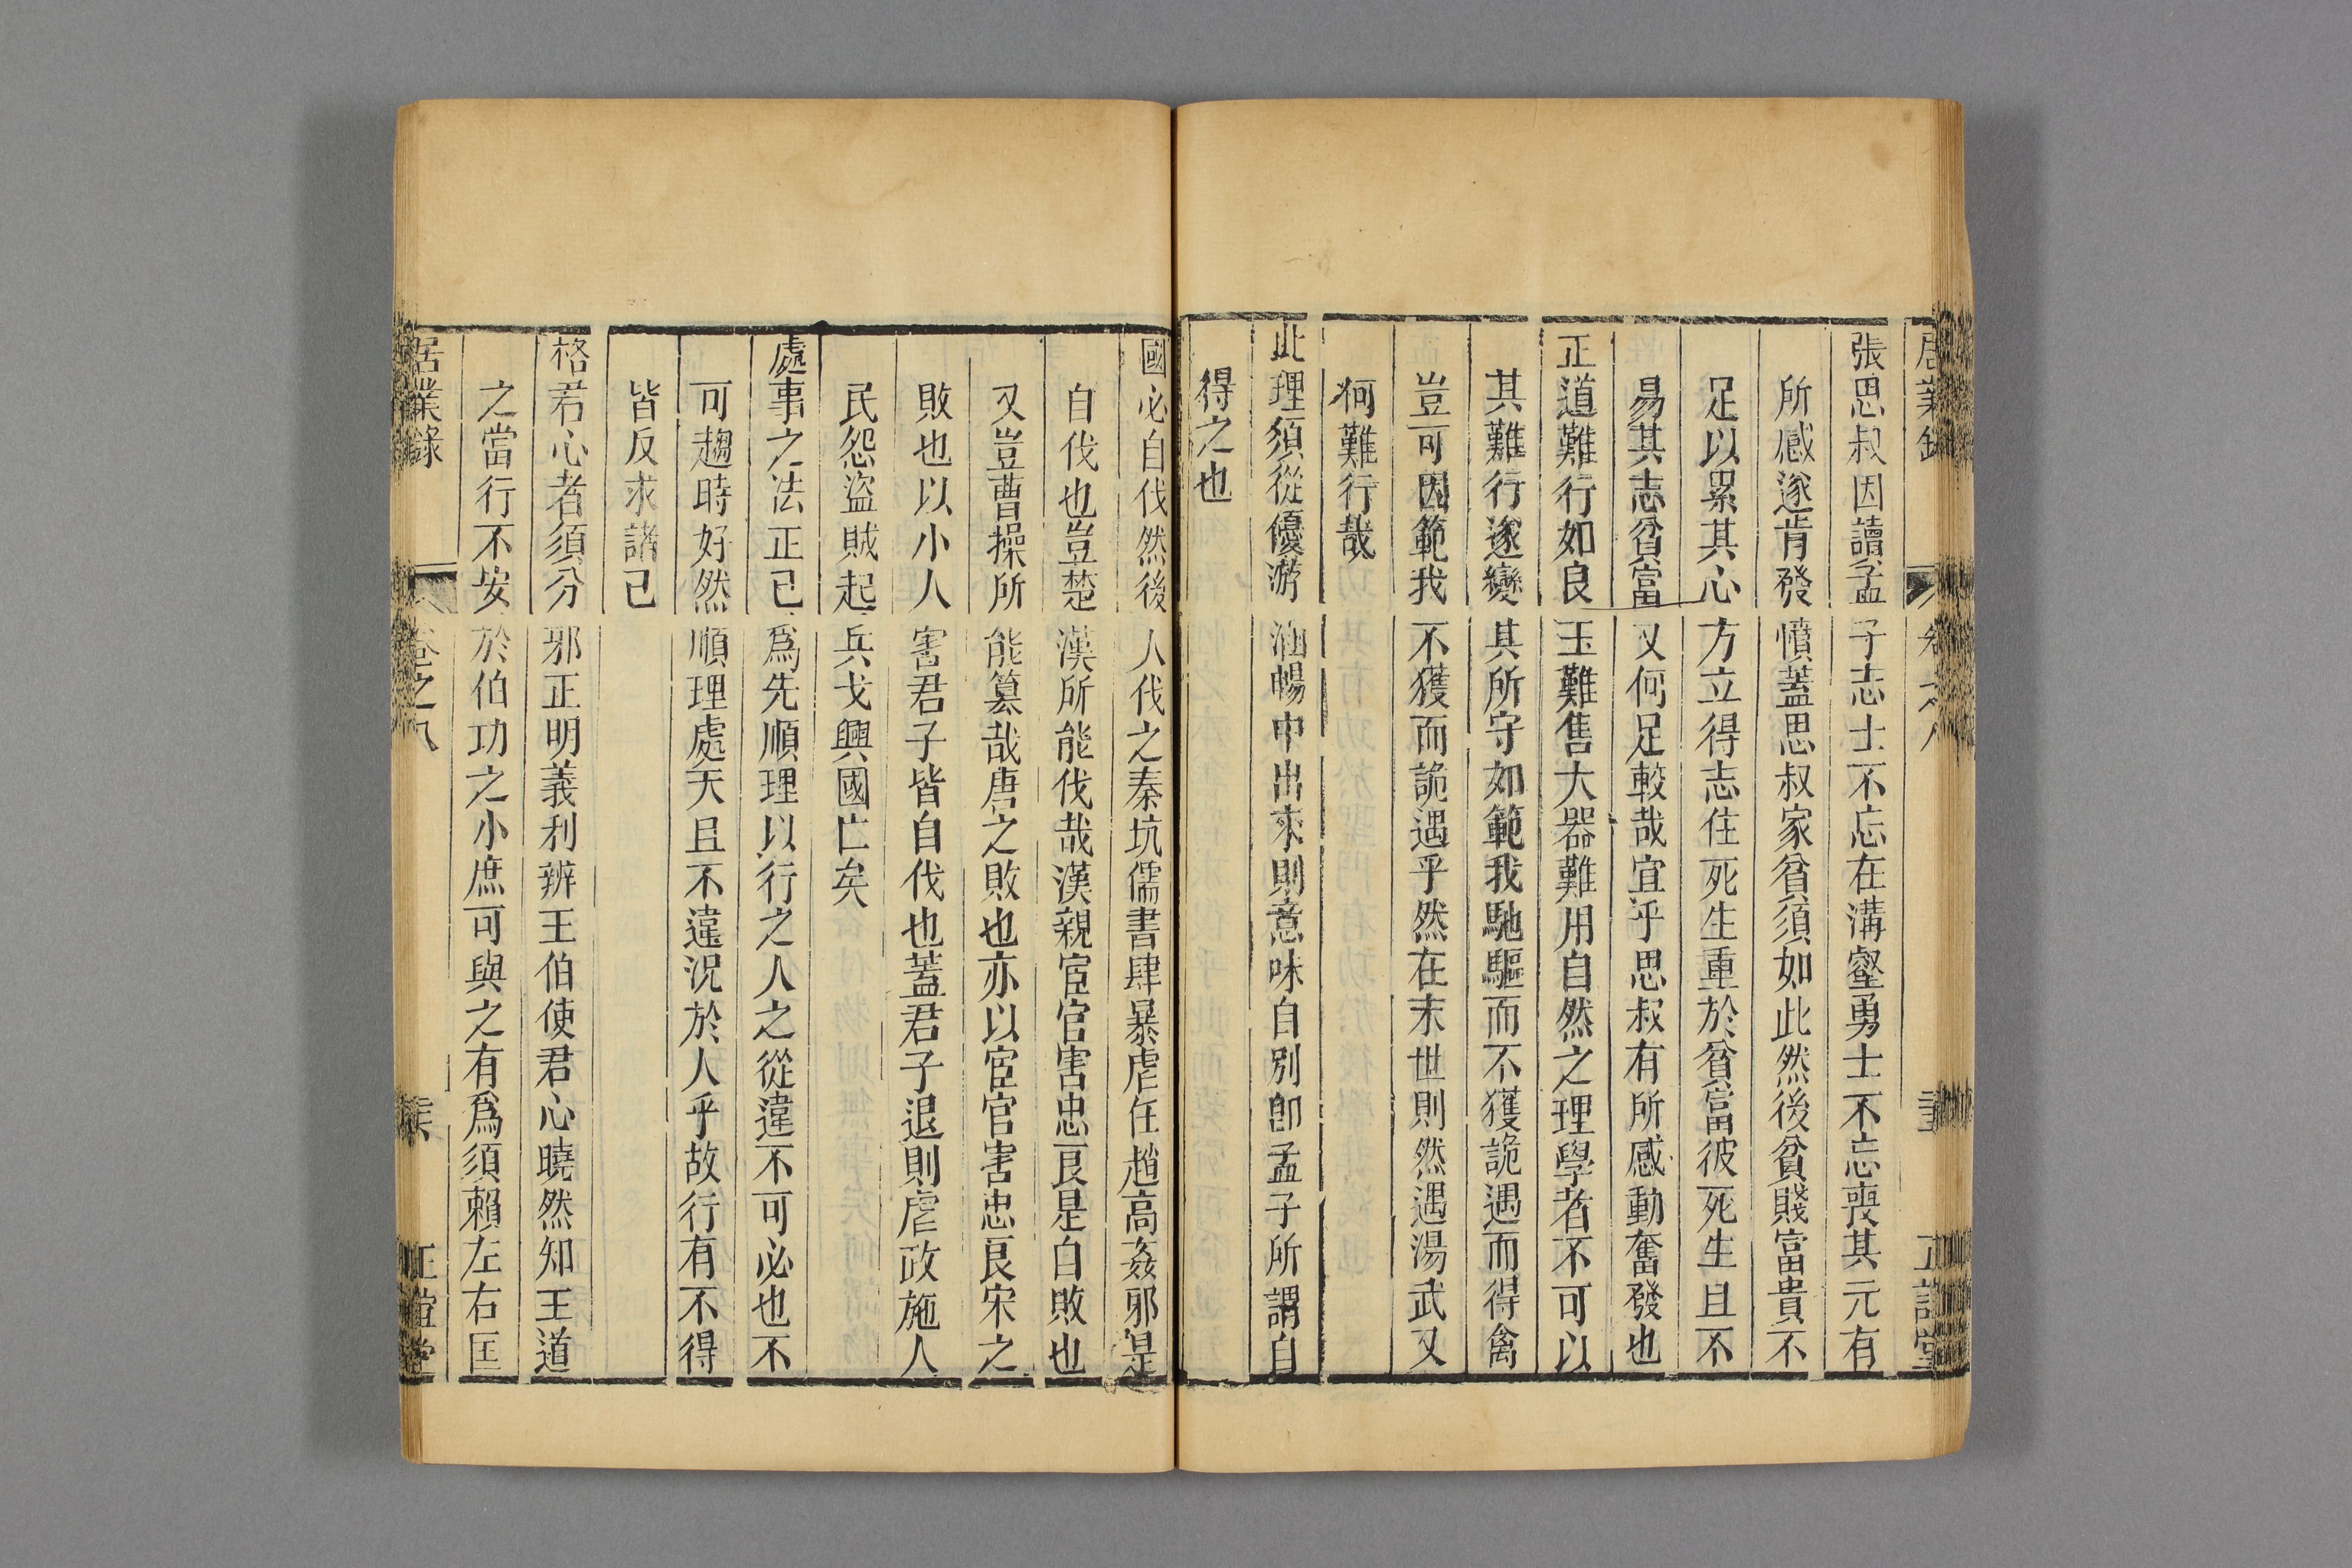 居業錄 卷之八 正誼堂
張思叔因讀孟子志士不忘在溝壑勇士不忘喪其元有
所感遂肯發憤蓋思叔家貧須如此然後貧賤富貴不
足以累其心方立得志住死生重於貧富彼死生且不
易其志貧富又何足較哉宜乎思叔有所感動奮發也
正道難行如良玉難售大器難用自然之理學者不可以
其難行遂變其所守如範我馳驅而不獲詭遇而得禽
豈可因範我不獲而詭遇乎然在末世則然遇湯武又
何難行哉
此理須從優游涵暢中出來則意味自別卽孟子所謂自
得之也
國必自伐然後人伐之秦坑儒書肆暴虐任趙高姦邪是
自伐也豈楚漢所能伐哉漢親宦官害忠良是自敗也
又豈曹操所能篡哉唐之敗也亦以宦官害忠良宋之
敗也以小人害君子皆自伐也蓋君子退則虐政施人
民怨盜賊起兵戈興國亡矣
處事之法正己爲先順理以行之人之從違不可必也不
可趨時好然順理處天且不違況於人乎故行有不得
皆反求諸己
格君心者須分邪正明義利辨王伯使君心曉然知王道
之當行不安於伯功之小庶可與之有爲須賴左右匡
居業錄 卷之八 正誼堂